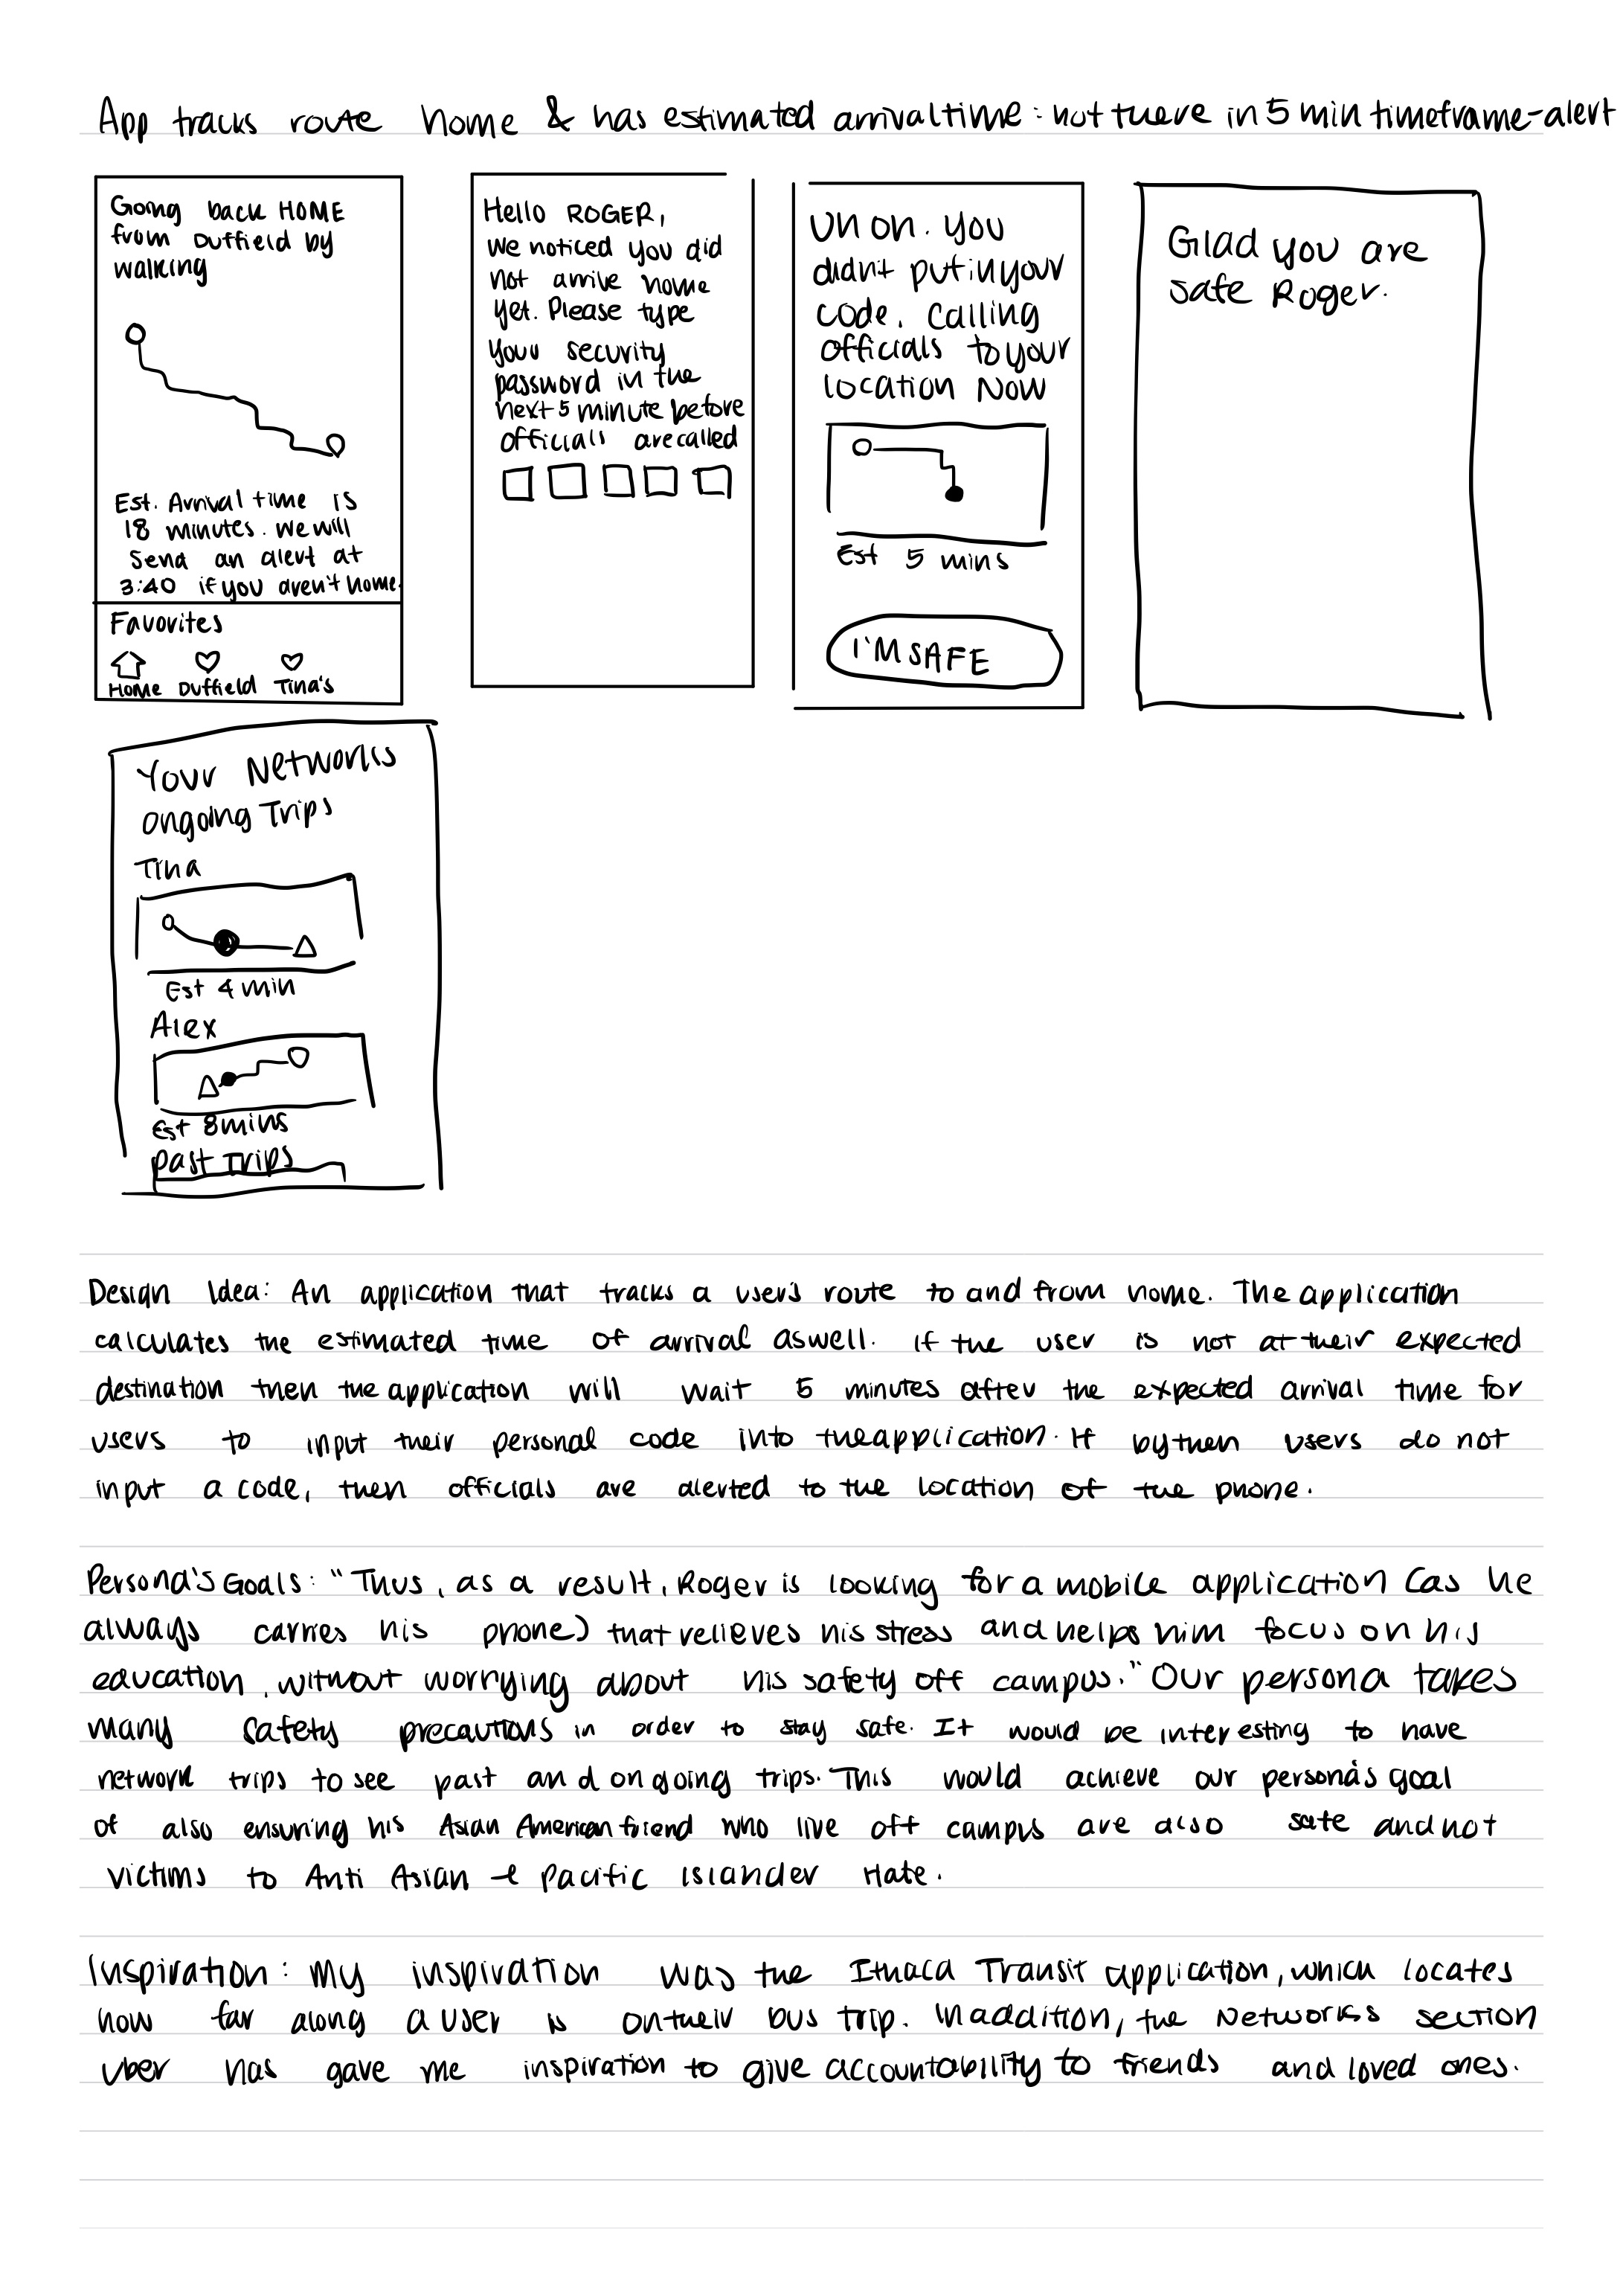 App tracks route home & has estimated arrival time : not there in 5 min timeframe - alert
Going back HOME
from Duffield by
walking
Est. Arrival time is
18 minutes. we will
send an alert at
3:40 if you aren't home.
Favorites
Home Duffield Tina's
Hello ROGER,
we noticed you did
not arrive home
yet. Please type
your security
password in the
next 5 minute before
officials are called
Uh oh. You
didn't put in your
code. Calling
officials to your
location NOW
Est 5 mins
I'M SAFE
Glad you are
safe Roger.
Your Networks
ongoing Trips
Tina
Est 4 min
Alex
Est 8 mins
Past Trips
Design Idea: An application that tracks a user's route to and from home. The application
calculates the estimated time of arrival aswell. If the user is not at their expected
destination then the application will wait 5 minutes after the expected arrival time for
users to input their personal code into the application. If by then users do not
input a code, then officials are alerted to the location of the phone.
Persona's Goals: "Thus, as a result, Roger is looking for a mobile application (as he
always carries his phone) that relieves his stress and helps him focus on his
education, without worrying about his safety off campus." Our persona takes
many safety precautions in order to stay safe. It would be interesting to have
network trips to see past and ongoing trips. This would achieve our persona's goal
of also ensuring his Asian American friend who live off campus are also safe and not
victims to Anti Asian & Pacific Islander Hate.
Inspiration: My inspiration was the Ithaca Transit application, which locates
how far along a user is on their bus trip. In addition, the Networks section
Uber has gave me inspiration to give accountability to friends and loved ones.